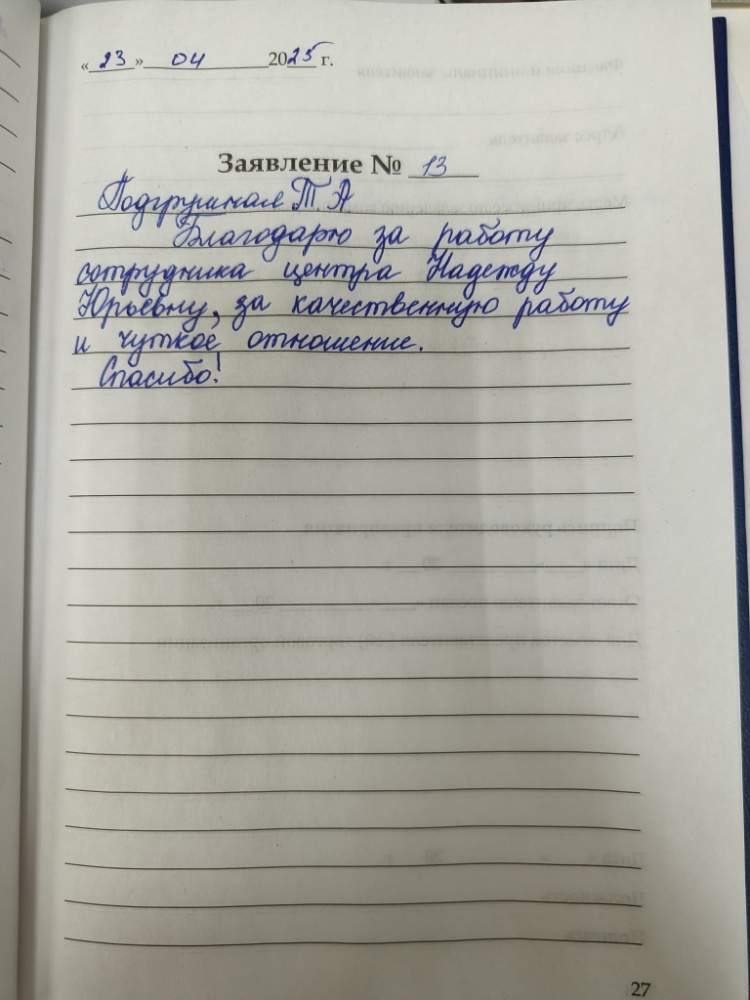 « 23 » 04 2025 г.
Заявление № 13
Т. А
Благодарю за работу
сотрудника центра Надежду
Юрьевну, за качественную работу
и чуткое отношение.
Спасибо!
27